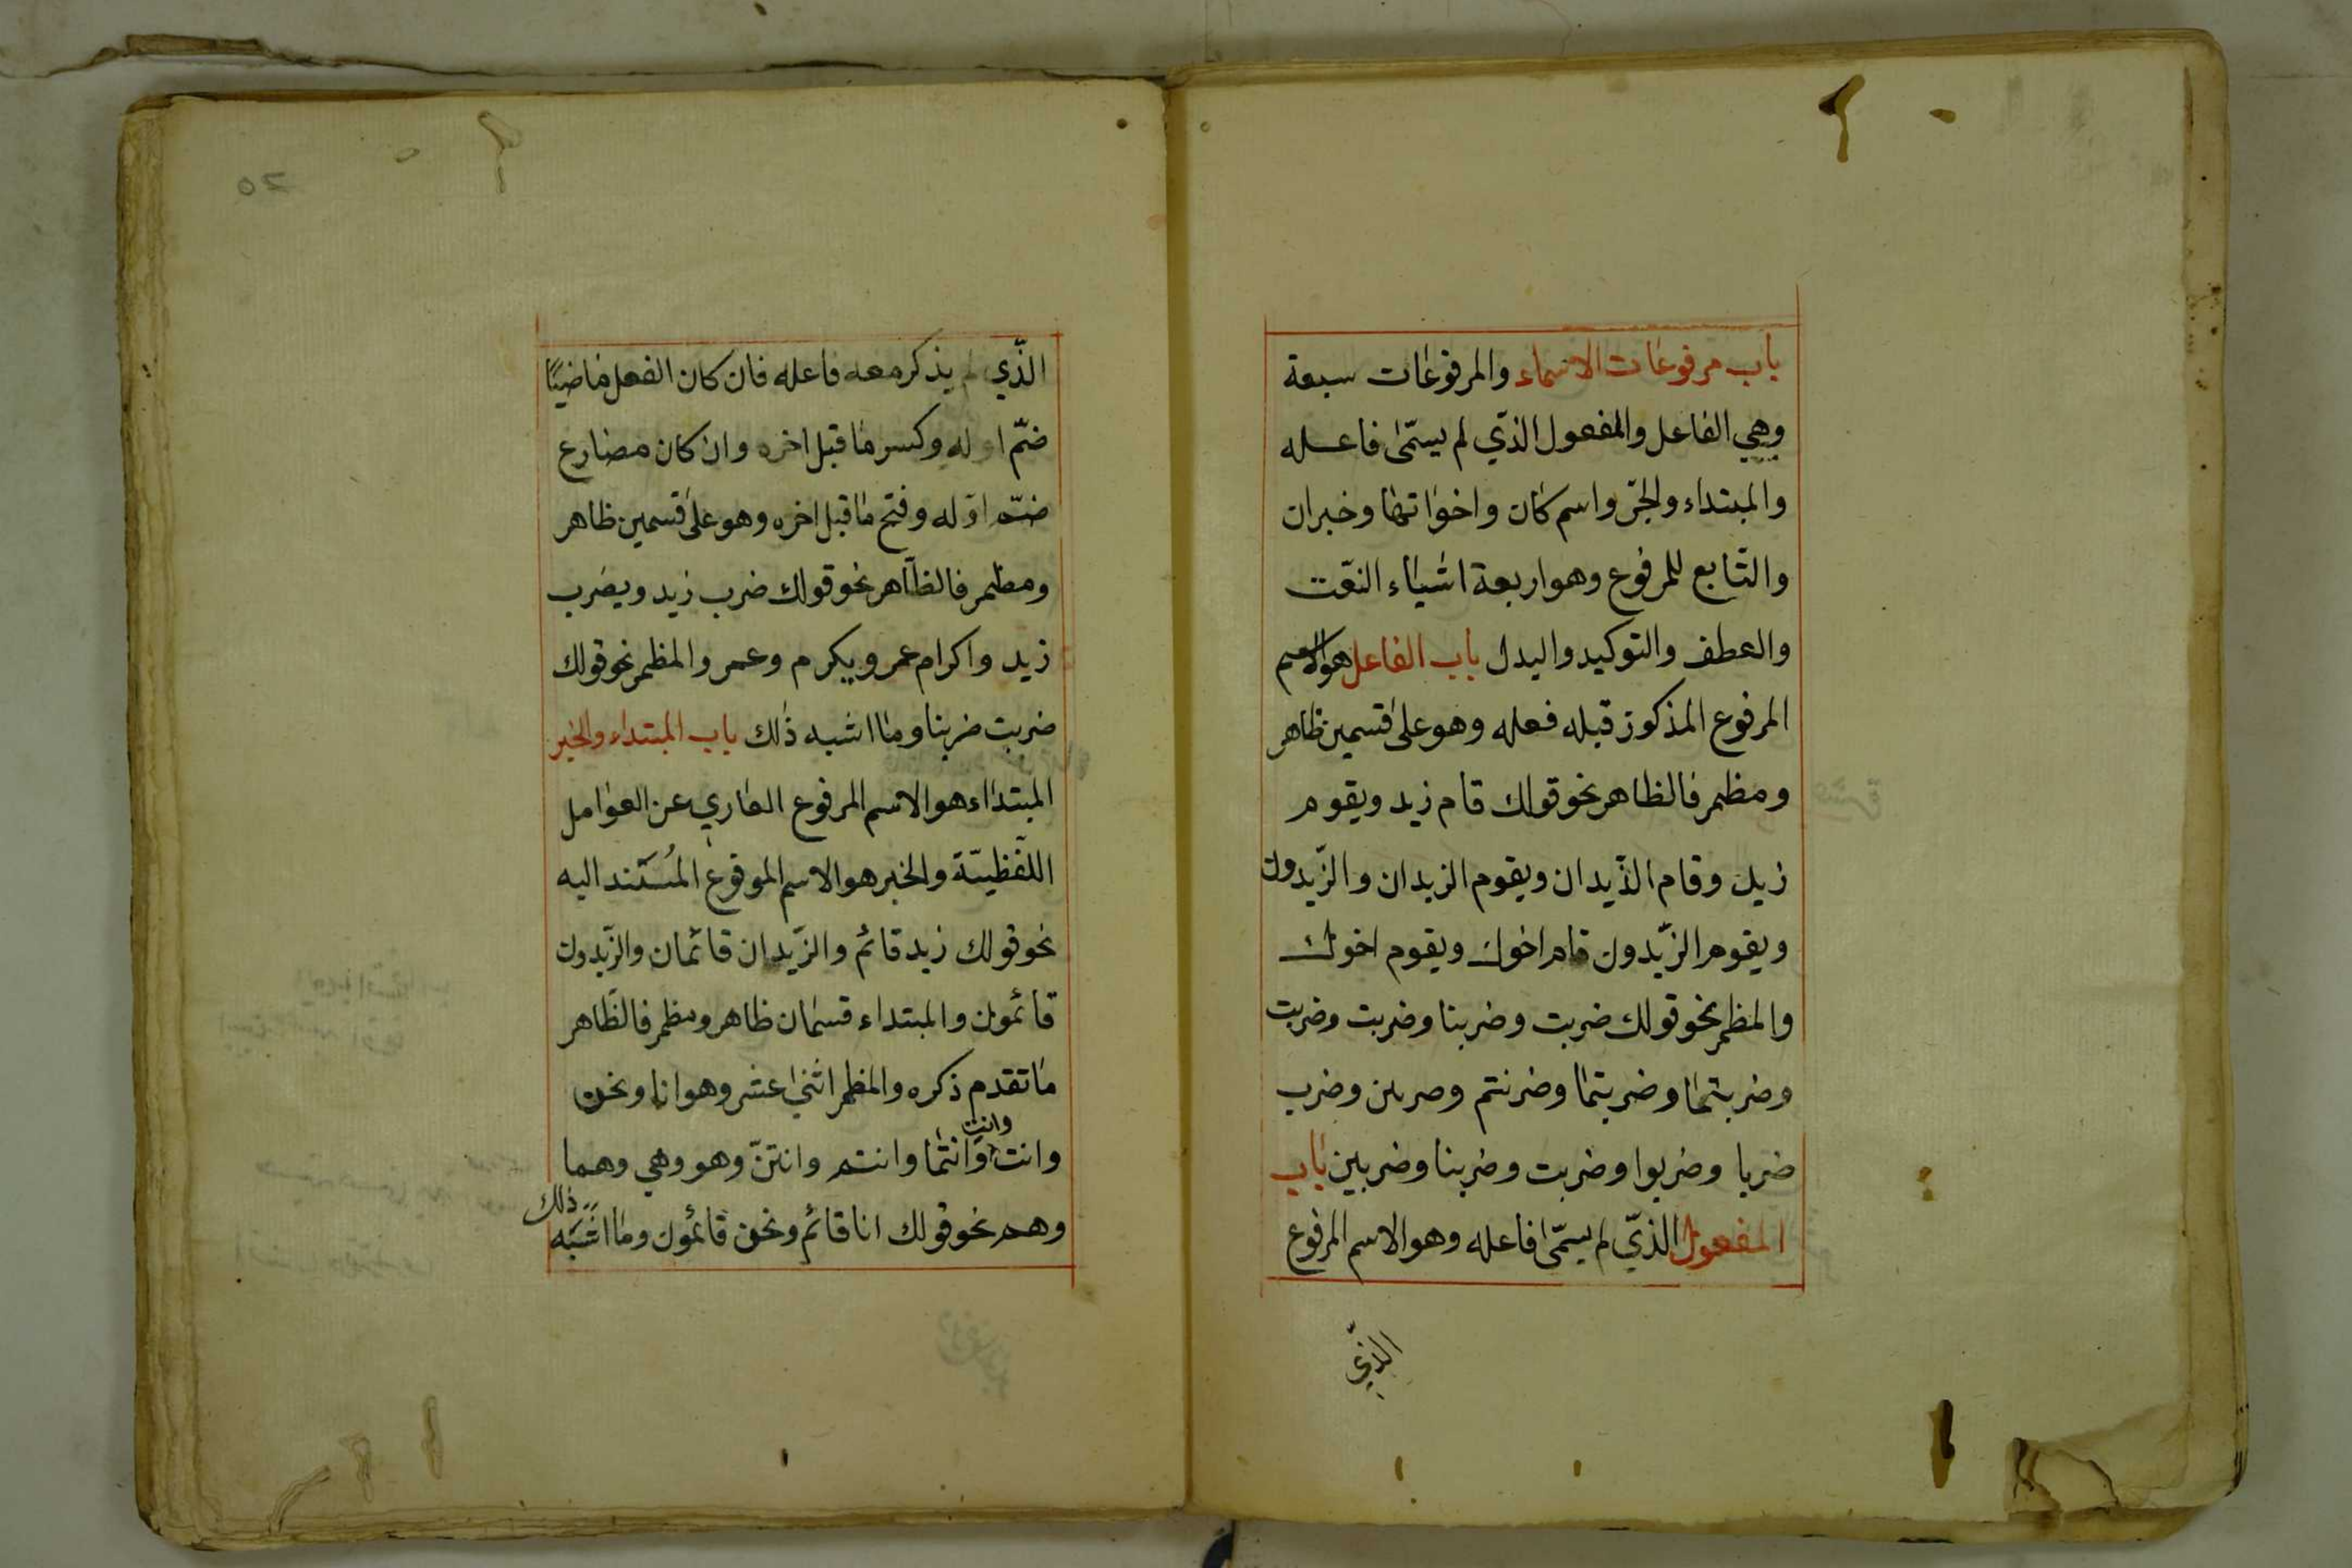 باب مرفوعات الاسماء والمرفوعات سبعة
وهي الفاعل والمفعول الذي لم يسمّى فاعله
والمبتداء والخبر واسم كان واخواتها وخبران
والتّابع للمرفوع وهو اربعة اشياء النعت
والعطف والتوكيد والبدل باب الفاعل هو الاسم
المرفوع المذكور قبله فعله وهو على قسمين ظاهر
ومظمر فالظاهر نحو قولك قام زيد ويقوم
زيد وقام الزّيدان ويقوم الزيدان والزّيدون
ويقوم الزّيدون قام اخوك ويقوم اخوك
والمظمر نحو قولك ضربت وضربنا وضربت وضربت
وضربتما وضربتما وضربتم وضربتن وضرب
ضربا وضربوا وضربت وضربنا وضربين باب
المفعول الذّي لم يسمّى فاعله وهو الاسم المرفوع
الذّي
20
الذّي لم يذكر معه فاعله فان كان الفعل ماضيًا
ضمّ اوله وكسر ما قبل اخره وان كان مضارع
ضمّ اوّله وفتح ما قبل اخره وهو على قسمين ظاهر
ومظمر فالظّاهر نحو قولك ضرب زيد ويضرب
زيد واكرام عمر ويكرم وعمر والمظمر نحو قولك
ضربت ضربنا وما اشبه ذلك باب المبتداء والخبر
المبتداء هو الاسم المرفوع العاري عن العوامل
اللّفظيّة والخبر هو الاسم المرفوع المُسَتند اليه
نحو قولك زيد قائم والزّيدان قائمان والزّيدون
قائمون والمبتداء قسمان ظاهر ومظمر فالظّاهر
ما تقدم ذكره والمظمر اثني عشر وهو انا ونحن
وانت وانتِ وانتما وانتم وانتنّ وهو وهي وهما
وهم نحو قولك انا قائم ونحن قائمون وما اشبه ذلك